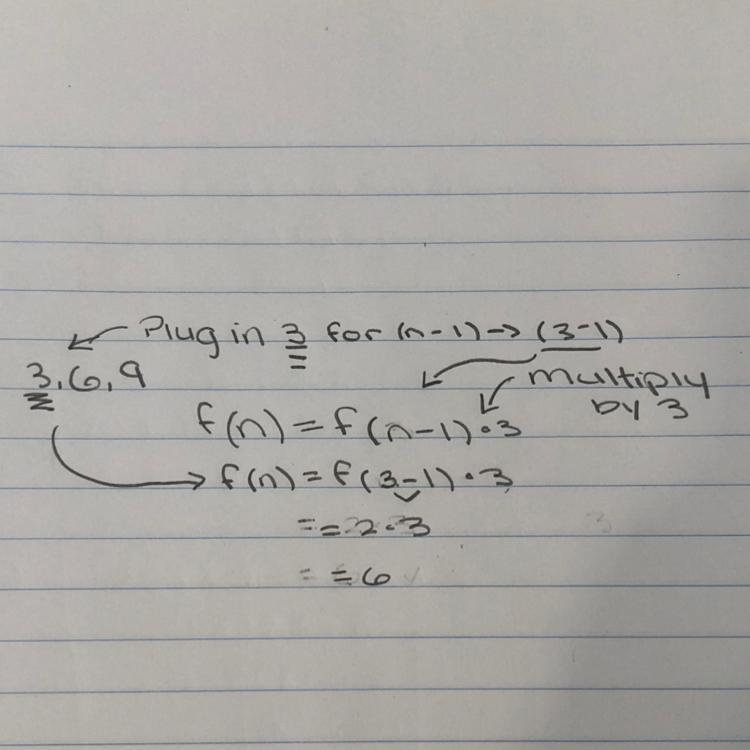 Plug in 3 for (n-1) → (3-1)
3, 6, 9
multiply
by 3
f(n) = f(n-1) • 3
f(n) = f(3-1) • 3
= = 2 • 3
= = 6